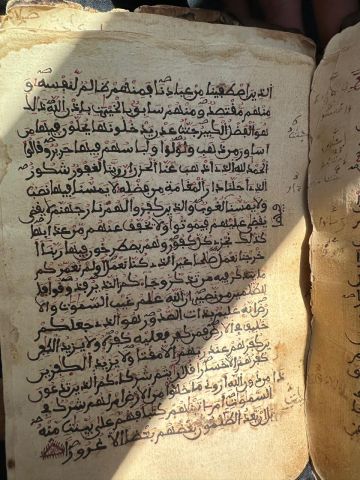 الذين اصطفينا من عبادنا فمنهم ظالم لنفسه و
منهم مقتصد ومنهم سابق بالخيرت باذن الله ذلك
هو الفضل الكبير جنت عدن يدخلونها يحلون فيها من
اساور من ذهب ولؤلؤا ولباسهم فيها حرير وقالوا
الحمد لله الذي اذهب عنا الحزن ان ربنا لغفور شكور
الذي احلنا دار المقامة من فضله لا يمسنا فيها نصب
ولا يمسنا فيها لغوب والذين كفروا لهم نار جهنم لا يقضى
عليهم فيموتوا ولا يخفف عنهم من عذابها
كذلك نجزي كل كفور وهم يصطرخون فيها ربنا ا
خرجنا نعمل صلحا غير الذي كنا نعمل اولم نعمركم
ما يتذكر فيه من تذكر وجاكم النذير فذوقوا فما
للظلمين من نصير ان الله علم غيب السموت والا
رض انه عليم بذات الصدور هو الذي جعلكم
خليف في الارض فمن كفر فعليه كفره ولا يزيد الكفرين
كفرهم عند ربهم الا مقتا ولا يزيد الكفرين
كفرهم الا خسارا قل اريتم شركاكم الذين تدعون
من دون الله اروني ماذا خلقوا من الارض ام لهم شرك في
السموت ام اتينهم كتبا فهم على بينت منه
بل ان يعد الظلمون بعضهم بعضا الا غرورا